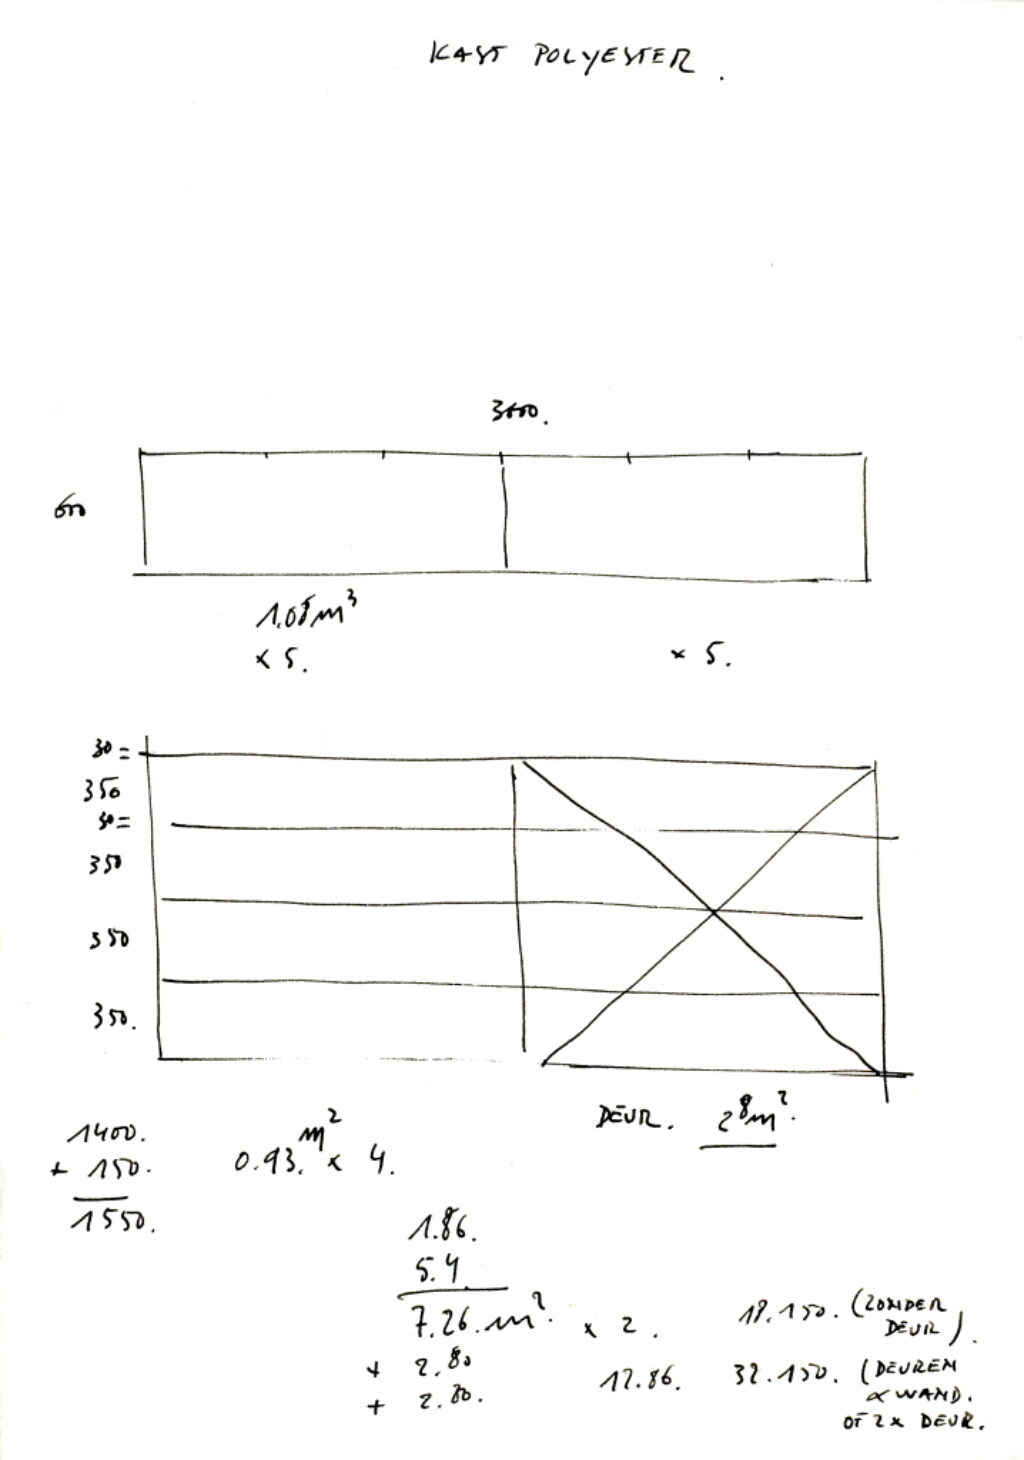 KAST POLYESTER.
3600.
600
1.08 m³
× 5.
× 5.
30 =
350
30 =
350
350
350.
DEUR. 2⁸m².
1400.
+ 150.
1550.
0.93. m² × 4.
1.86.
5.4
7.26. m². × 2.
+ 2.80
+ 2.80.
12.86.
18.150. (ZONDER
DEUR).
32.150. (DEUREN
& WAND.
OF 2x DEUR.